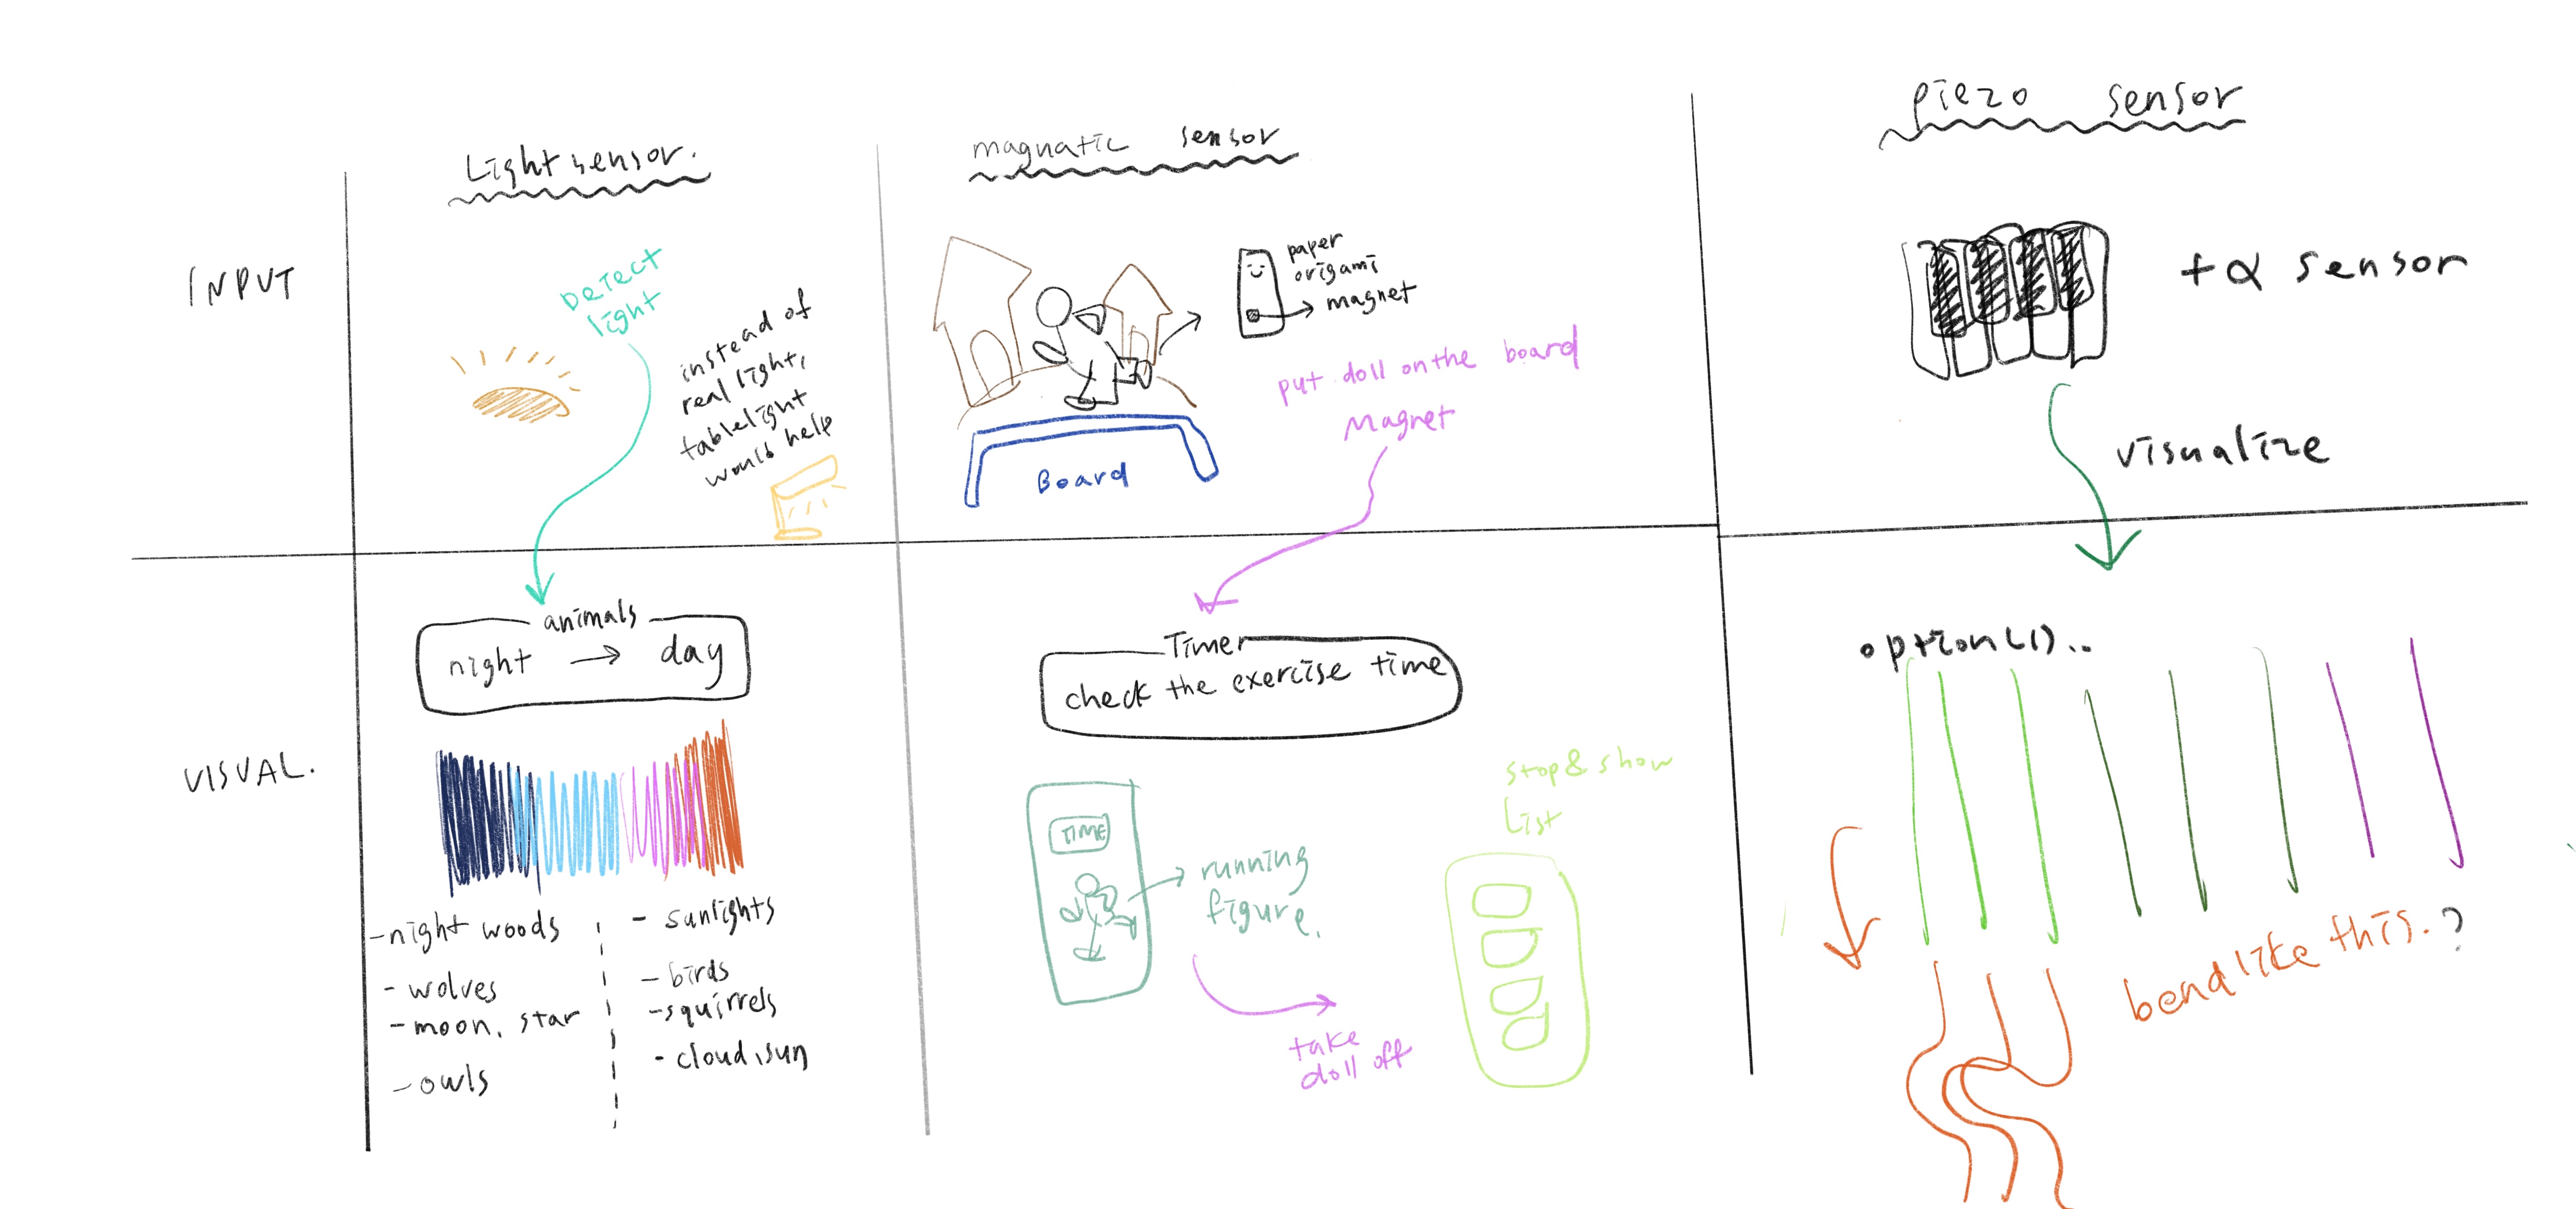 Light sensor.
magnatic sensor
piezo sensor
INPUT
Detect
light
instead of
real light,
tablelight
would help
paper
origami
magnet
put doll on the board
Magnet
Board
+α sensor
visualize
VISUAL.
animals
night → day
- night woods
- wolves
- moon, star
- owls
- sunlights
- birds
- squirrels
- cloud, sun
Timer
check the exercise time
TIME
running
figure.
take
doll off
stop & show
List
• option(1)..
bend like this.?